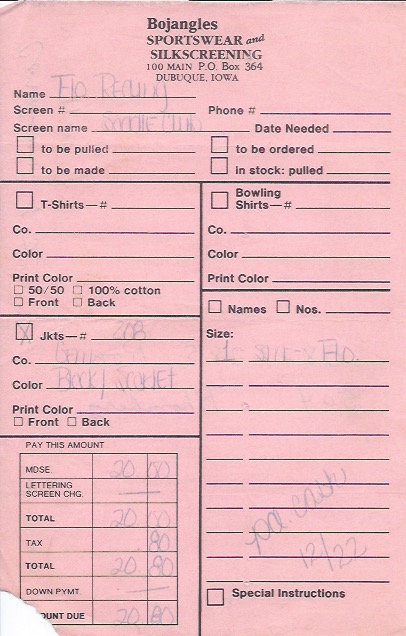 Bojangles
SPORTSWEAR and
SILKSCREENING
100 MAIN P.O. Box 364
DUBUQUE, IOWA
Name Flo
Screen # Phone #
Screen name Date Needed
to be pulled to be ordered
to be made in stock: pulled
T-Shirts—#
Co.
Color
Print Color
50/50 100% cotton
Front Back
Bowling
Shirts—#
Co.
Color
Print Color
X Jkts—# 208
Co.
Color Black/Scarlet
Print Color
Front Back
Names Nos.
Size:
1 Flo
PAY THIS AMOUNT
MDSE. 20 00
LETTERING
SCREEN CHG. —
TOTAL 20 00
TAX .80
TOTAL 20 80
DOWN PYMT. —
OUNT DUE 20 80
pd.
12/22
Special Instructions